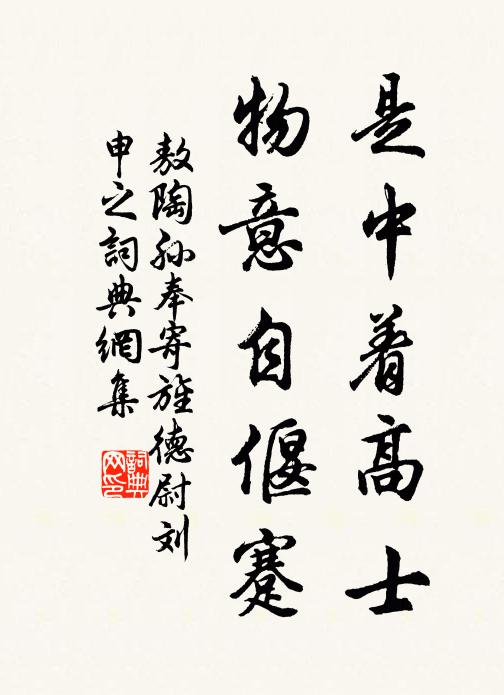 是中着高士
物意自偃蹇
敖陶孙奉寄旌德尉刘
申之詞典網集
詞典
网印